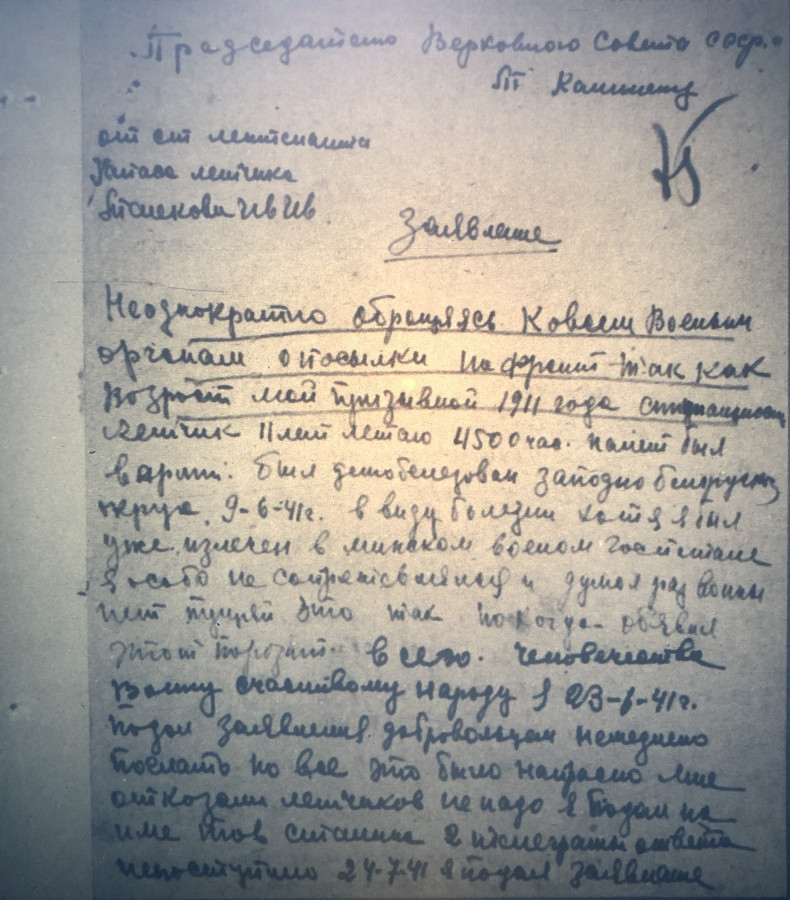 Председателю Верховного Совета ссср.
Калинену
от ст лейтенанта
запаса летчика
Ив Ив
Заявление
Неоднократно обращаясь Ковсем Военым
органам о посылки на фронт так как
возраст мой призывной 1911 года
летчик 11 лет летаю 4500 час. налет был
в арми. был демобелезован заподно белоруский
округ 9-6-41г. в виду болезни хотя я был
уже излечен в минском военом госпитале
я особо не сопротевлялся и думал раз войны
нет пущай это так но когда обявил
этот паразит всего. человечества
войну счастливому народу я 23-6-41г.
подал заявления добровольцем немедлено
послать но все это было напрасно мне
отказали летчиков не надо я подал на
име тов сталина 2 телеграмы ответа
непоступило 24-7-41 я подал заявление